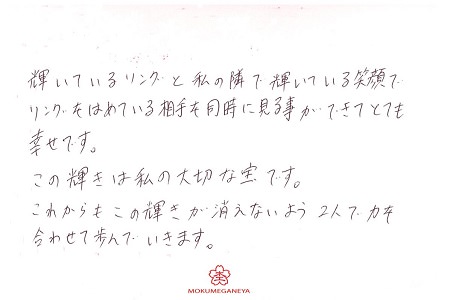 輝いているリングと私の隣で輝いている笑顔で
リングをはめている相手を同時に見る事ができてとても
幸せです。
この輝きは私の大切な宝です。
これからもこの輝きが消えないよう2人で力を
合わせて歩んでいきます。
MOKUMEGANEYA